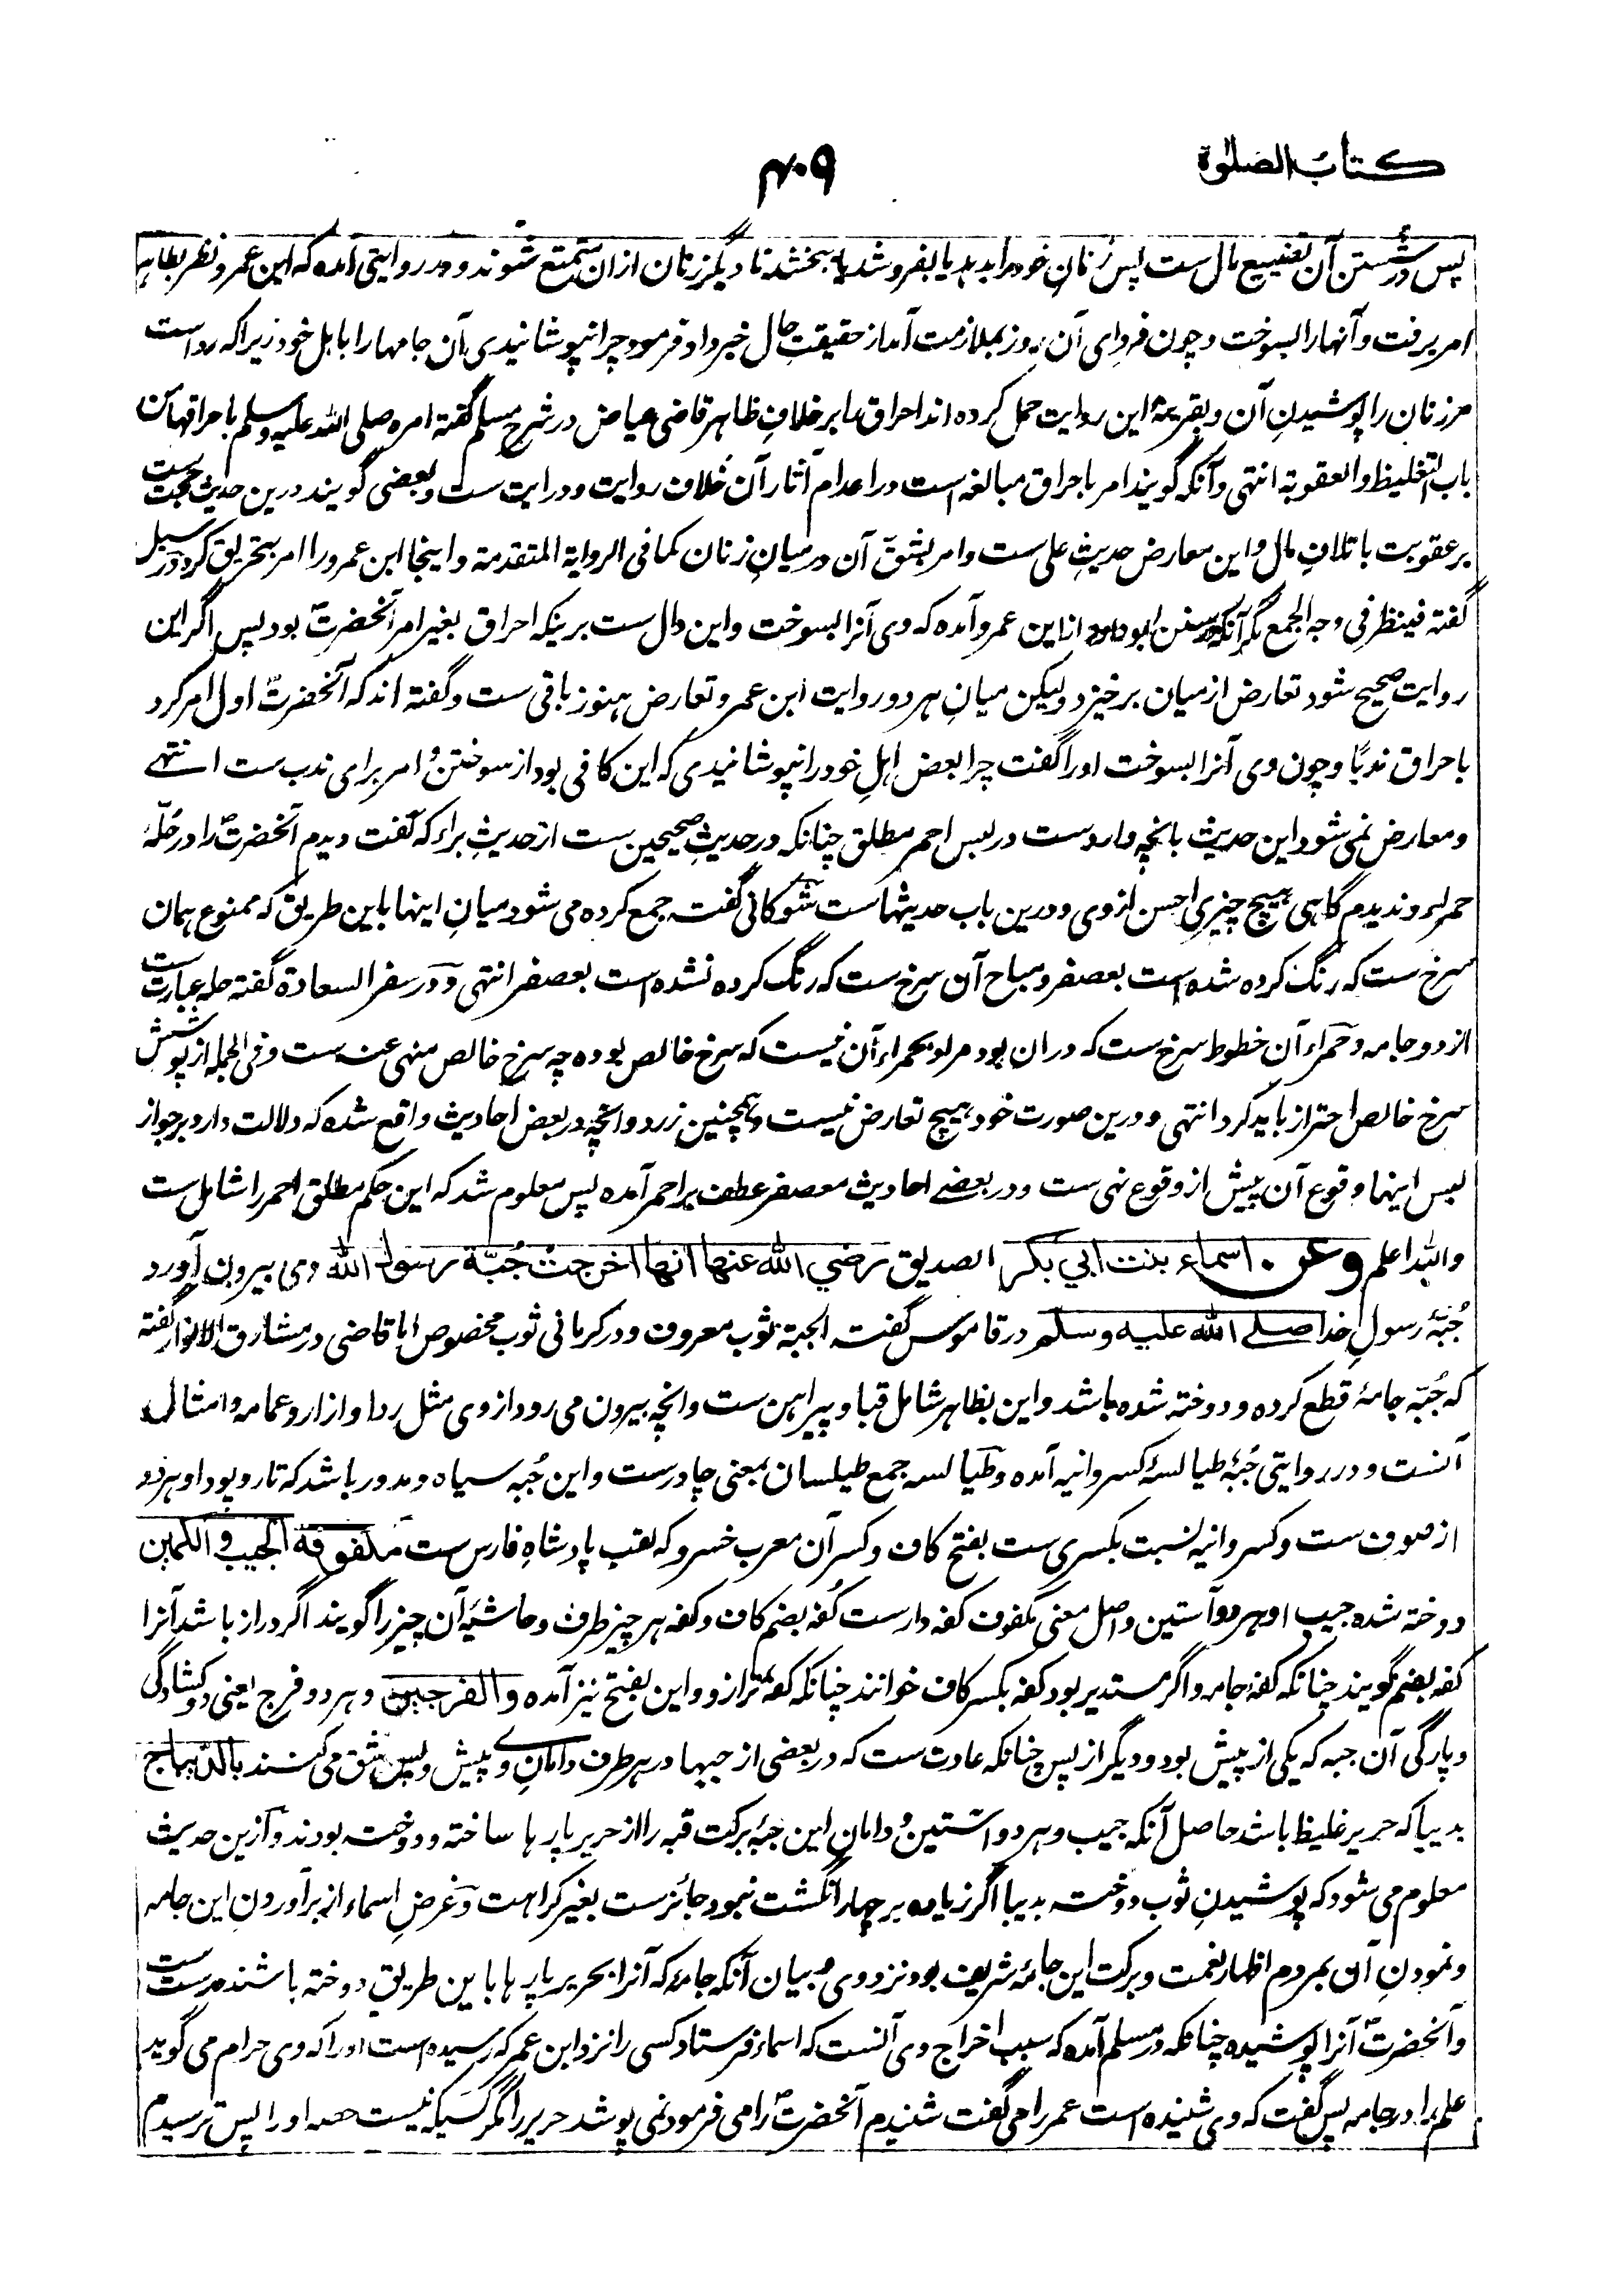 کتاب الصلوٰة
۴۰۹
پس در شستن آن تضییع مال ست پس زنان خود را بدهد یا بفروشد یا ببخشد تا دیگر زنان ازان متمتع شوند و در روایتی آمده که ابن عمرو نظر بظاهر
امر برفت و آنها را بسوخت و چون فردای آن روز بملازمت آمد از حقیقت حال خبر داد فرمود چرا نپوشانیدی آن جامها را باهل خود زیرا که رواست
مر زنان را پوشیدن آن و بقرینهٔ این روایت حمل کرده اند احراق را بر خلاف ظاهر قاضی عیاض در شرح مسلم گفته امره صلی الله علیه وسلم باحراقها من
باب التغلیظ والعقوبة انتهی و آنکه گویند امر باحراق مبالغه است در اعدام آثار آن خلاف روایت و درایت ست و بعضی گویند درین حدیث حجت ست
بر عقوبت باتلاف مال و این معارض حدیث علی ست و امر بشق آن در میان زنان کما فی الروایة المتقدمة و اینجا ابن عمرو را امر بتحریق کرد در سبل
گفته فینظر فی وجه الجمع مگر آنکه در سنن ابو داود از ابن عمرو آمده که وی آنرا بسوخت و این دال ست برینکه احراق بغیر امر آنحضرتؐ بود پس اگر این
روایت صحیح شود تعارض از میان برخیزد ولیکن میان هر دو روایت ابن عمرو تعارض هنوز باقی ست و گفته اند که آنحضرتؐ اول امر کرد
باحراق ندبًا و چون وی آنرا بسوخت او را گفت چرا بعض اهل خود را نپوشانیدی که این کافی بود از سوختن و امر برای ندب ست انتهے
و معارض نمی شود این حدیث بانچه وارد ست در لبس احمر مطلق چنانکه در حدیث صحیحین ست از حدیث براء که گفت دیدم آنحضرتؐ را در حُلّهٔ
حمراء و ندیدم گاهی هیچ چیزی احسن از وی و درین باب حدیثهاست شوکانی گفته جمع کرده می شود میان اینها باین طریق که ممنوع همان
سرخ ست که رنگ کرده شده است بعصفر و مباح آن سرخ ست که رنگ کرده نشده است بعصفر انتهی و در سفر السعادة گفته حله عبارت ست
از دو جامه و حمراء آن خطوط سرخ ست که دران بود مراد بحمراء آن نیست که سرخ خالص بوده چه سرخ خالص منهی عنه ست و فی الجمله از پوشش
سرخ خالص احتراز باید کرد انتهی و درین صورت خود هیچ تعارض نیست و همچنین زرد و آنچه در بعض احادیث واقع شده که دلالت دارد بر جواز
لبس اینها وقوع آن پیش از وقوع نهی ست و در بعضے احادیث معصفر عطف بر احمر آمده پس معلوم شد که این حکم مطلق احمر را شامل ست
والله اعلم وعن اسماء بنت ابي بكر الصديق رضي الله عنها انها اخرجت جُبّة رسول الله وی بیرون آورد
جُبّهٔ رسولِ خدا صلے الله علیه وسلم در قاموس گفته الجبة ثوب معروف و در کرمانی ثوب مخصوص اما قاضی در مشارق الانوار گفته
که جُبّه جامهٔ قطع کرده و دوخته شده باشد و این بظاهر شامل قبا و پیراهن ست و آنچه بیرون می رود از وی مثل ردا و ازار و عمامه و امثال
آنست و در روایتی جُبّهٔ طیالسهٔ کسروانیه آمده و طیالسه جمع طیلسان بمعنی چادرست و این جُبه سیاه و مدور باشد که تار و پود او هر دو
از صوف ست و کسروانیه نسبت بکسری ست بفتح کاف و کسر آن معرب خسرو که لقب پادشاهِ فارس ست مكفوفة الجيب والكمين
دوخته شده جیب او هر دو آستین و اصل معنی مکفوف کفه دارست کُفه بضم کاف و کفه هر چیز طرف و حاشیهٔ آن چیز را گویند اگر دراز باشد آنرا
کفه بضم گویند چنانکه کفهٔ جامه و اگر مستدیر بود کفه بکسر کاف خوانند چنانکه کفهٔ ترازو و این بفتح نیز آمده والفرجين و هر دو فرج یعنی دو کشادگی
و پارگی آن جبه که یکی از پیش بود و دیگر از پس چنانکه عادت ست که در بعضی از جبها در هر طرف دامانِ وے پیش و پس شق می کنند بالديباج
بدیبا که حریر غلیظ باشد حاصل آنکه جیب و هر دو آستین و دامان این جبهٔ برکت قبه را از حریر پارها ساخته و دوخته بودند و ازین حدیث
معلوم می شود که پوشیدنِ ثوب دوخته بدیبا اگر زیاده بر چهار انگشت نبود جائزست بغیر کراهت و غرض اسماء از برآوردن این جامه
و نمودنِ آن بمردم اظهار نعمت و برکت این جامهٔ شریف بود نزد وی و بیان آنکه جامهٔ که آنرا بحریر پارها باین طریق دوخته باشند درست ست
و آنحضرتؐ آنرا پوشیده چنانکه در مسلم آمده که سبب اخراج وی آنست که اسماء فرستاد کسی را نزد ابن عمر که رسیده است او را که وی حرام می گوید
علم را در جامه پس گفت که وی شنیده است عمر را می گفت شنیدم آنحضرتؐ را می فرمود نمی پوشد حریر را مگر کسیکه نیست حصه او را پس ترسیدم